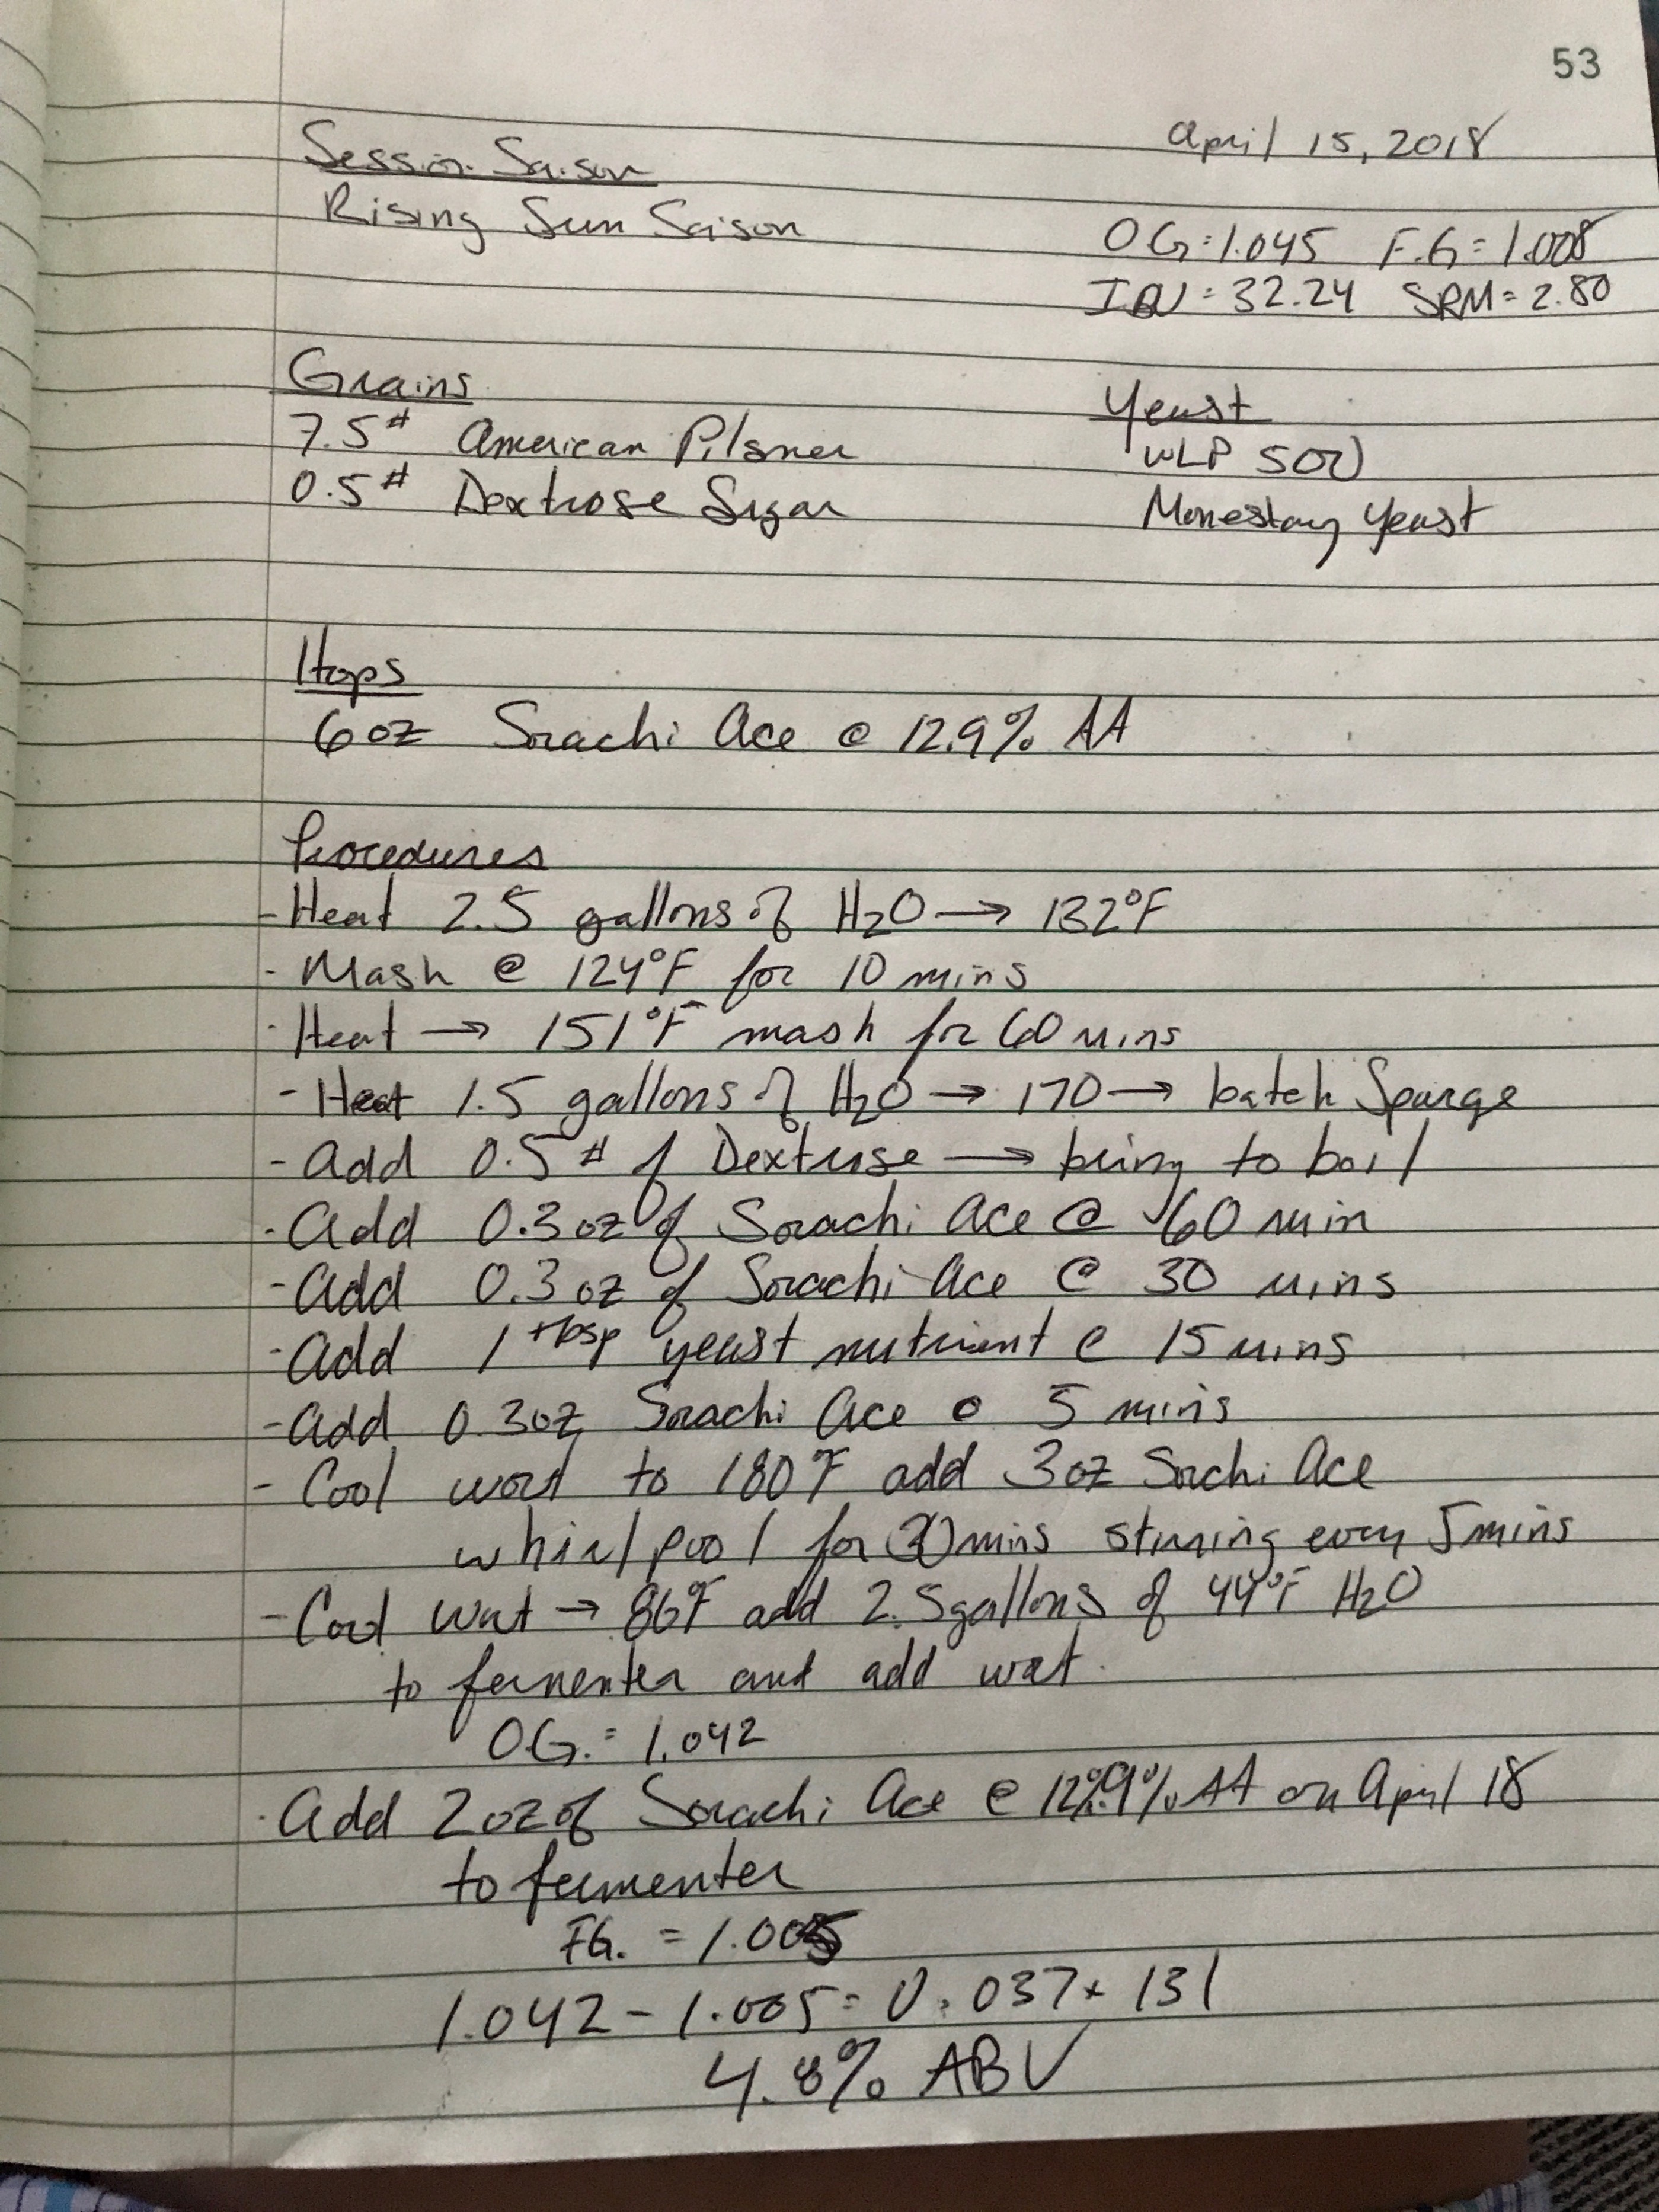 53
April 15, 2018
Session Saison
Rising Sun Saison
OG=1.045 F.G=1.008
IBU=32.24 SRM=2.80
Grains
7.5# American Pilsner
0.5# Dextrose Sugar
Yeast
WLP 500
Monestary Yeast
Hops
6oz Sorachi Ace @ 12.9% AA
Procedures
- Heat 2.5 gallons of H2O → 132°F
- Mash @ 124°F for 10 mins
- Heat → 151°F mash for 60 mins
- Heat 1.5 gallons of H2O → 170 → batch Sparge
- Add 0.5# of Dextrose → bring to boil
- Add 0.3oz of Sorachi Ace @ 60 min
- Add 0.3oz of Sorachi Ace @ 30 mins
- Add 1 tbsp yeast nutrient @ 15 mins
- Add 0.3oz Sorachi Ace @ 5 mins
- Cool wort to 180°F add 3oz Srachi Ace
whirlpool for mins stirring every 5mins
- Cool wort → 86°F add 2.5gallons of 44°F H2O
to fermenter and add wort.
O.G. = 1.042
- Add 2oz of Sorachi Ace @ 12.9% AA on April 18
to fermenter
FG. = 1.005
1.042 - 1.005 = 0.037 x 131
4.8% ABV